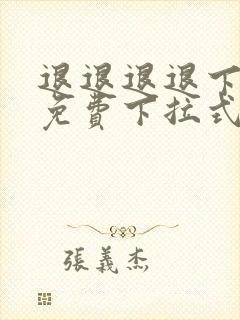 退退退退下
免費下拉式
張義杰